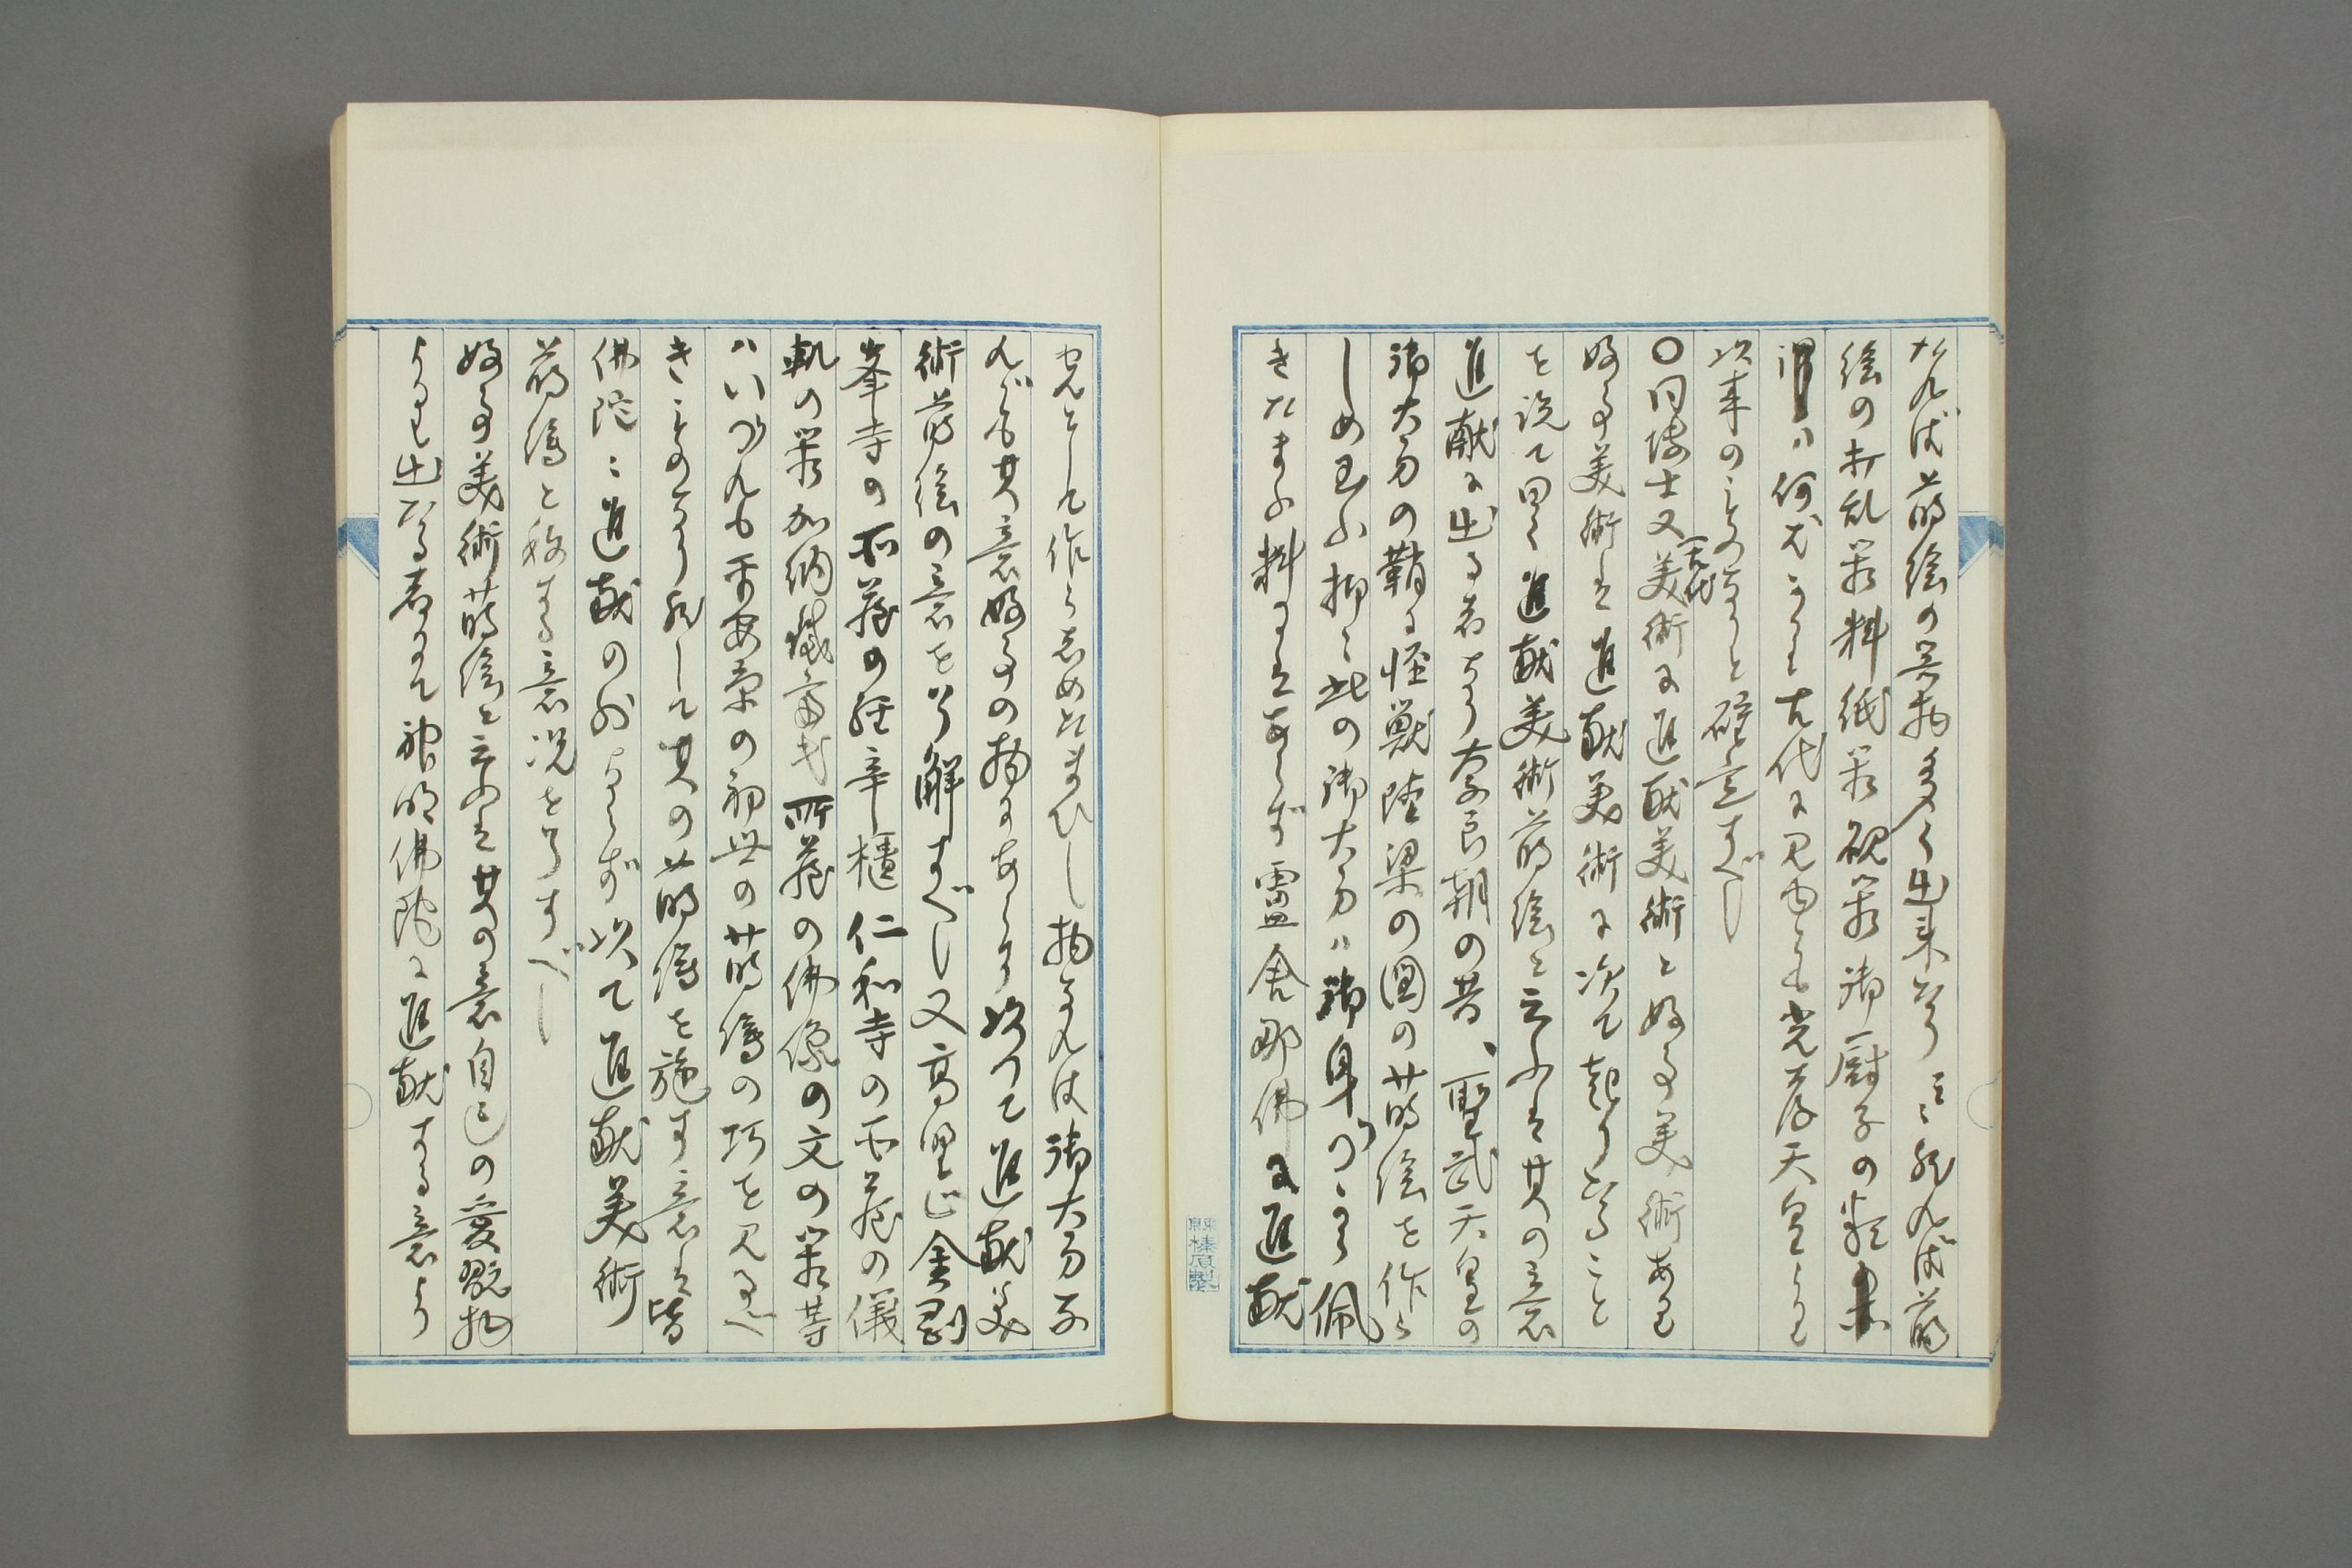 たれば蒔絵の器物多く出来せり云々然れば蒔
絵の打乱筥料紙筥硯筥御厨子の類の
ハ何れよりも古代に見ゆるも光孝天皇よりも
以来のことなりと確言すべし
〇同博士又古代美術に進献美術と好事美術あるも
好事美術は進献美術に次て起りたること
を説て曰く進献美術蒔絵と云ふは其の意
進献に出る者なり奈良朝の昔、聖武天皇の
御大刀の鞘に怪獣陸梁の図の蒔絵を作ら
しめ玉ふ抑も此の御大刀ハ御身づから佩
きたまふ料にはあらず霊舎那佛に進献
せんとして作らしめたまひし物なれば御大刀な
れども其意好事の物にあらず以て進献美
術蒔絵の意を了解すべし又高野山金剛
峯寺の所蔵の経辛櫃仁和寺の所蔵の儀
軌の筥加納鐵哉所蔵の佛像の文の筥等
ハいづれも平安京の初世の蒔絵の巧を見るべ
きものなり然して其の蒔絵を施す意は皆
佛陀に進献の外ならず以て進献美術
蒔絵と称する意況を了すべし
好事美術蒔絵と云ふは其の意自己の愛翫物
よりも出たる者にて神明佛陀に進献する意より
東京榛原製